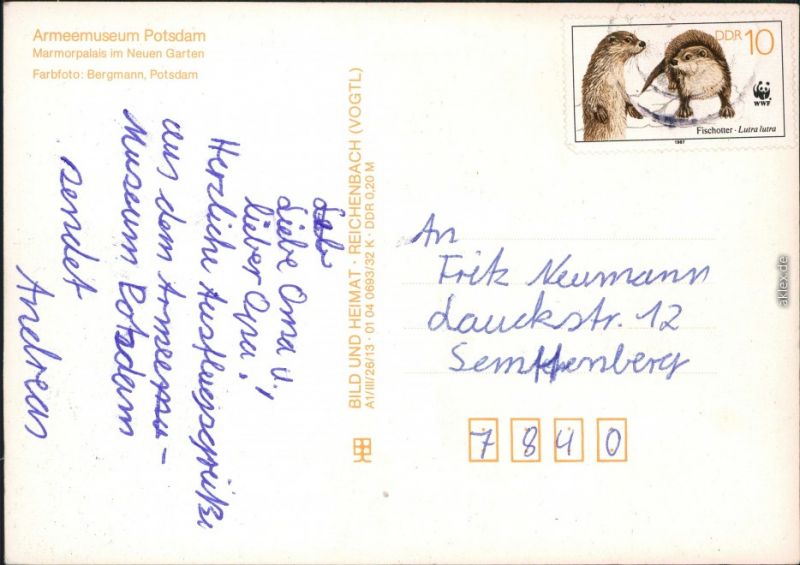 Armeemuseum Potsdam
Marmorpalais im Neuen Garten
Farbfoto: Bergmann, Potsdam
DDR 10
WWF
Fischotter · Lutra lutra
1987
BILD UND HEIMAT · REICHENBACH (VOGTL)
A1/III/26/13 · 01 04 0693/32 K · DDR 0,20 M
Liebe Oma u.
lieber Opa!
Herzliche Ausflugsgrüße
aus dem Armeemu-
Museum Potsdam
sendet
Andreas
An
Fritz Neumann
Lauckstr. 12
Senftenberg
7840
aklex.de